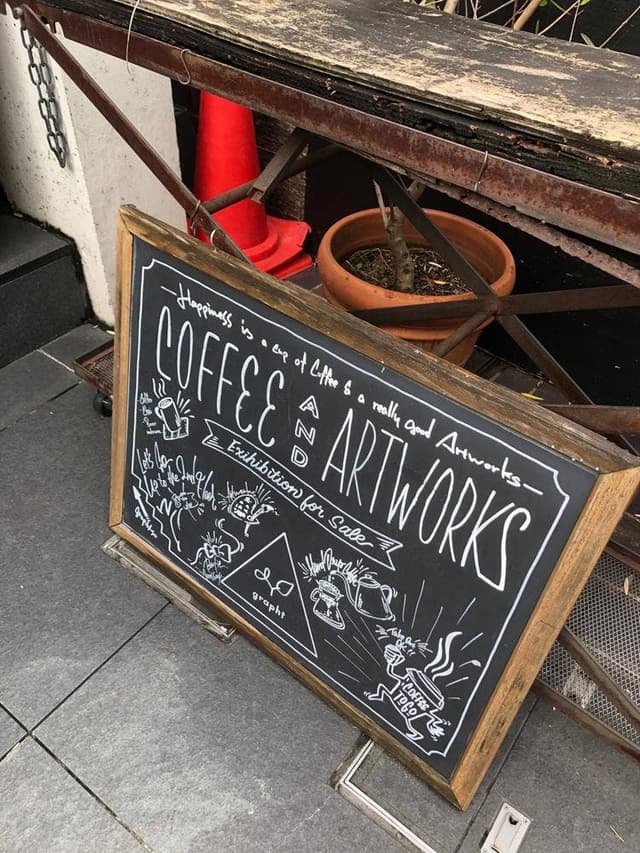 Happiness is a cup of Coffee & a really good Artworks
COFFEE
AND
ARTWORKS
Exihibition for Sale
Let's Go
Up to the 2nd floor
grapht
Hand Drip
Take
COFFEE
TO GO